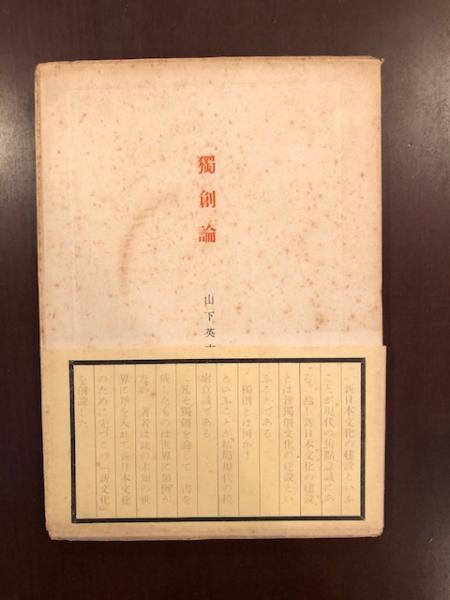 獨創論
山下英
新日本文化の建設といふ
ことが現代の焦點意識にあ
る。然し新日本文化の建設
とは新獨創文化の建設とい
ふことである。
獨創とは何か！
といふことが結局現代の
である
獨創を論じて一書を
成したものは世界に類例が
著者は此の未知の世
界に斧を入れて新日本文化
のために先づこの「新文化